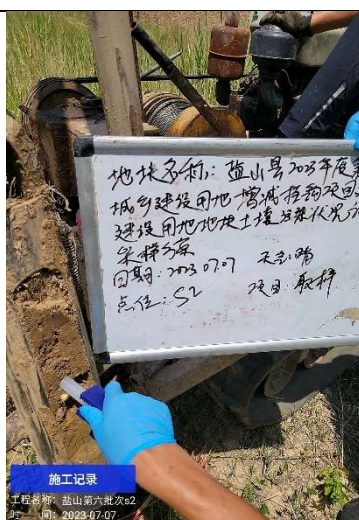 地块名称：盐山县2023年度第
城乡建设用地增减挂钩项目
建设用地地块土壤污染状况
采样方案
日期：2023.07.07 天气：晴
点位：S2 项目：取样
施工记录
工程名称：盐山第六批次s2
时 间：2023-07-07